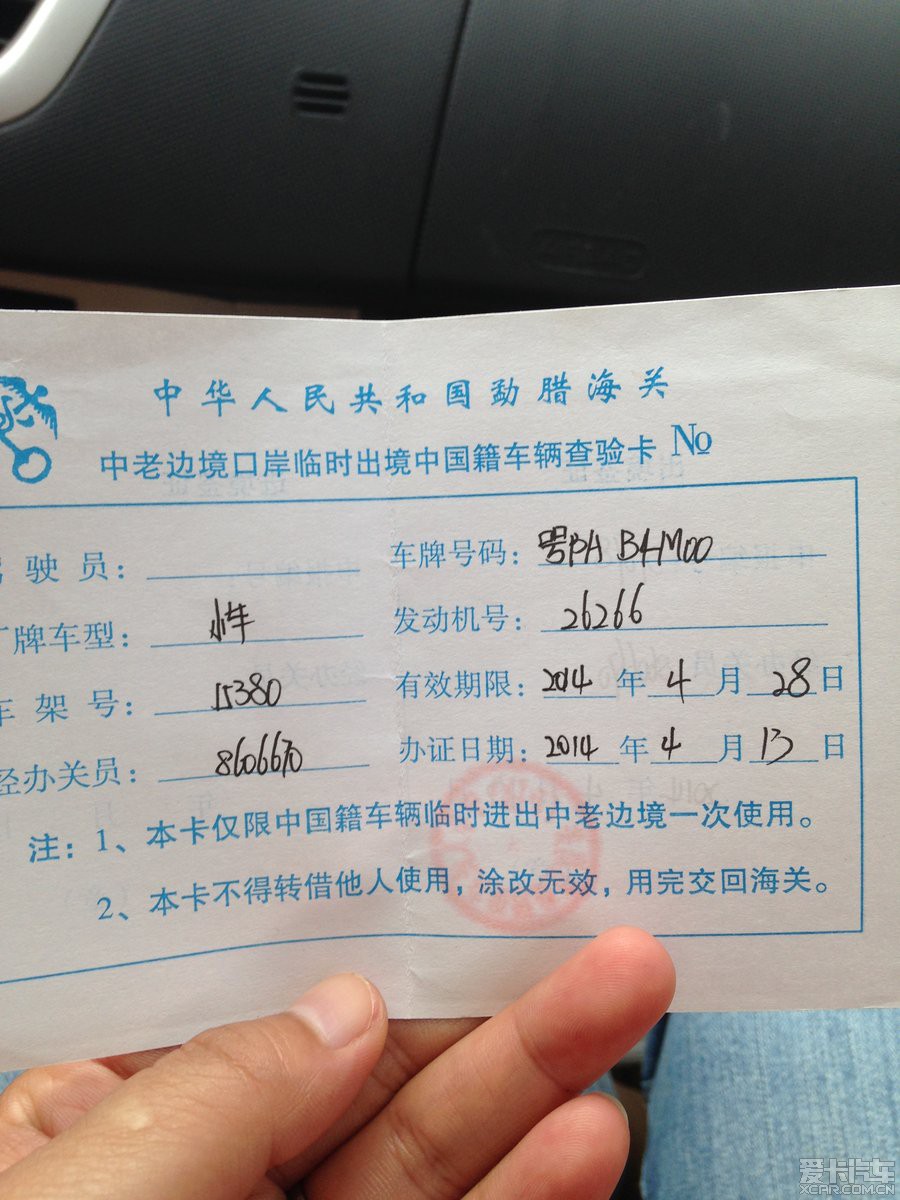 中华人民共和国勐腊海关
中老边境口岸临时出境中国籍车辆查验卡 No
驶员： 车牌号码：
牌车型：小车 发动机号：26266
车架号：15380 有效期限：2014年4月28日
经办关员：8606670 办证日期：2014年4月13日
注：1、本卡仅限中国籍车辆临时进出中老边境一次使用。
2、本卡不得转借他人使用，涂改无效，用完交回海关。
爱卡汽车
XCAR.COM.CN